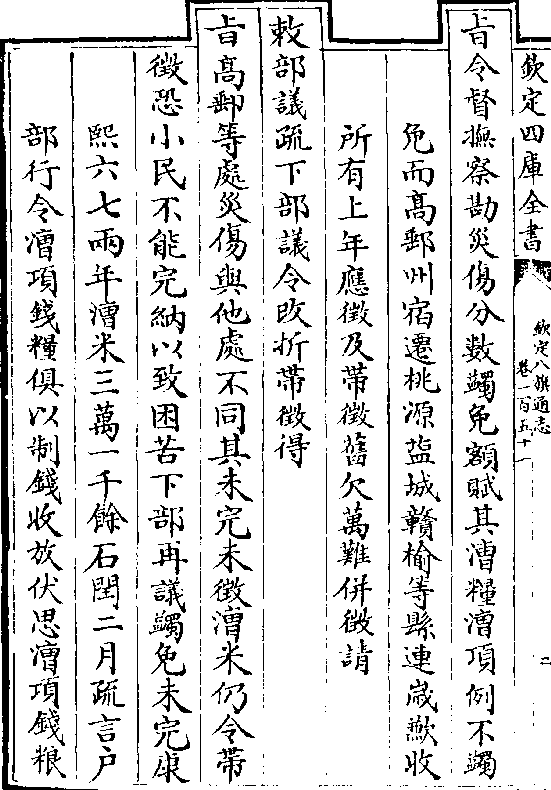 欽定四庫全書
欽定八旗通志
卷一百五十一
二
旨令督撫察勘災傷分數蠲免額賦其漕糧漕項例不蠲
免而髙郵州宿遷桃源盐城贛榆等縣連歲歉收
所有上年應徵及帶徵舊欠萬難併徵請
敕部議疏下部議令改折帶徵得
旨髙郵等處災傷與他處不同其未完未徵漕米仍令帶
徵恐小民不能完納以致困苦下部再議蠲免未完康
熙六七兩年漕米三萬一千餘石閏二月疏言户
部行令漕項錢糧俱以制錢收放伏思漕項錢粮